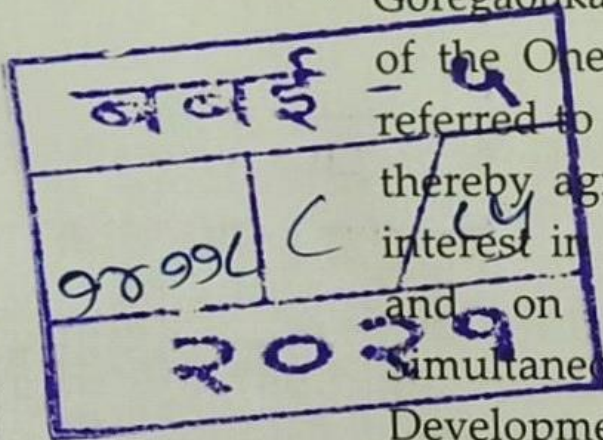 बबई - ५
१४११८ ८ / ८५
२०२१
Goregaonka
of the One
referred to
thereby ag
interest in
and on
Simultaneo
Developme